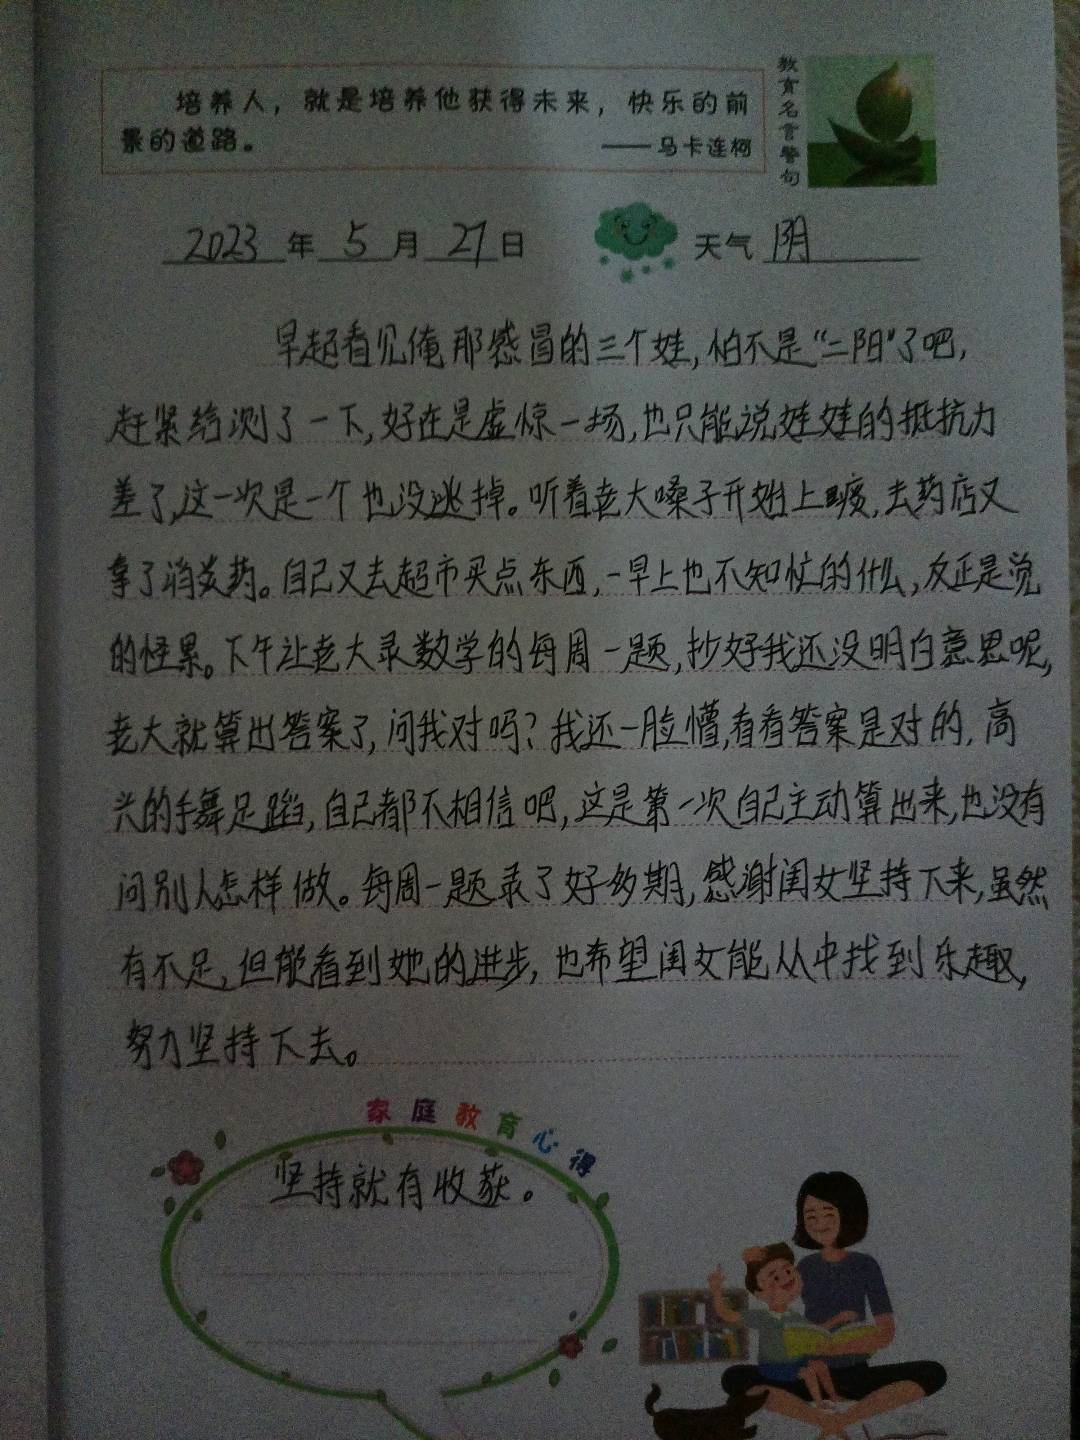 培养人，就是培养他获得未来，快乐的前
景的道路。
——马卡连柯
教育名言警句
2023年5月27日
天气 阴
早起看见俺那感冒的三个娃,怕不是“二阳”了吧,
赶紧给测了一下,好在是虚惊一场,也只能说娃娃的抵抗力
差了,这一次是一个也没逃掉。听着老大嗓子开始上哑,去药店又
拿了消炎药。自己又去超市买点东西,一早上也不知忙的什么,反正是觉
的怪累。下午让老大录数学的每周一题,抄好我还没明白意思呢,
老大就算出答案了,问我对吗?我还一脸懵,看看答案是对的,高
兴的手舞足蹈,自己都不相信吧,这是第一次自己主动算出来,也没有
问别人怎样做。每周一题录了好多期,感谢闺女坚持下来,虽然
有不足,但能看到她的进步,也希望闺女能从中找到乐趣,
努力坚持下去。
家庭教育心得
坚持就有收获。